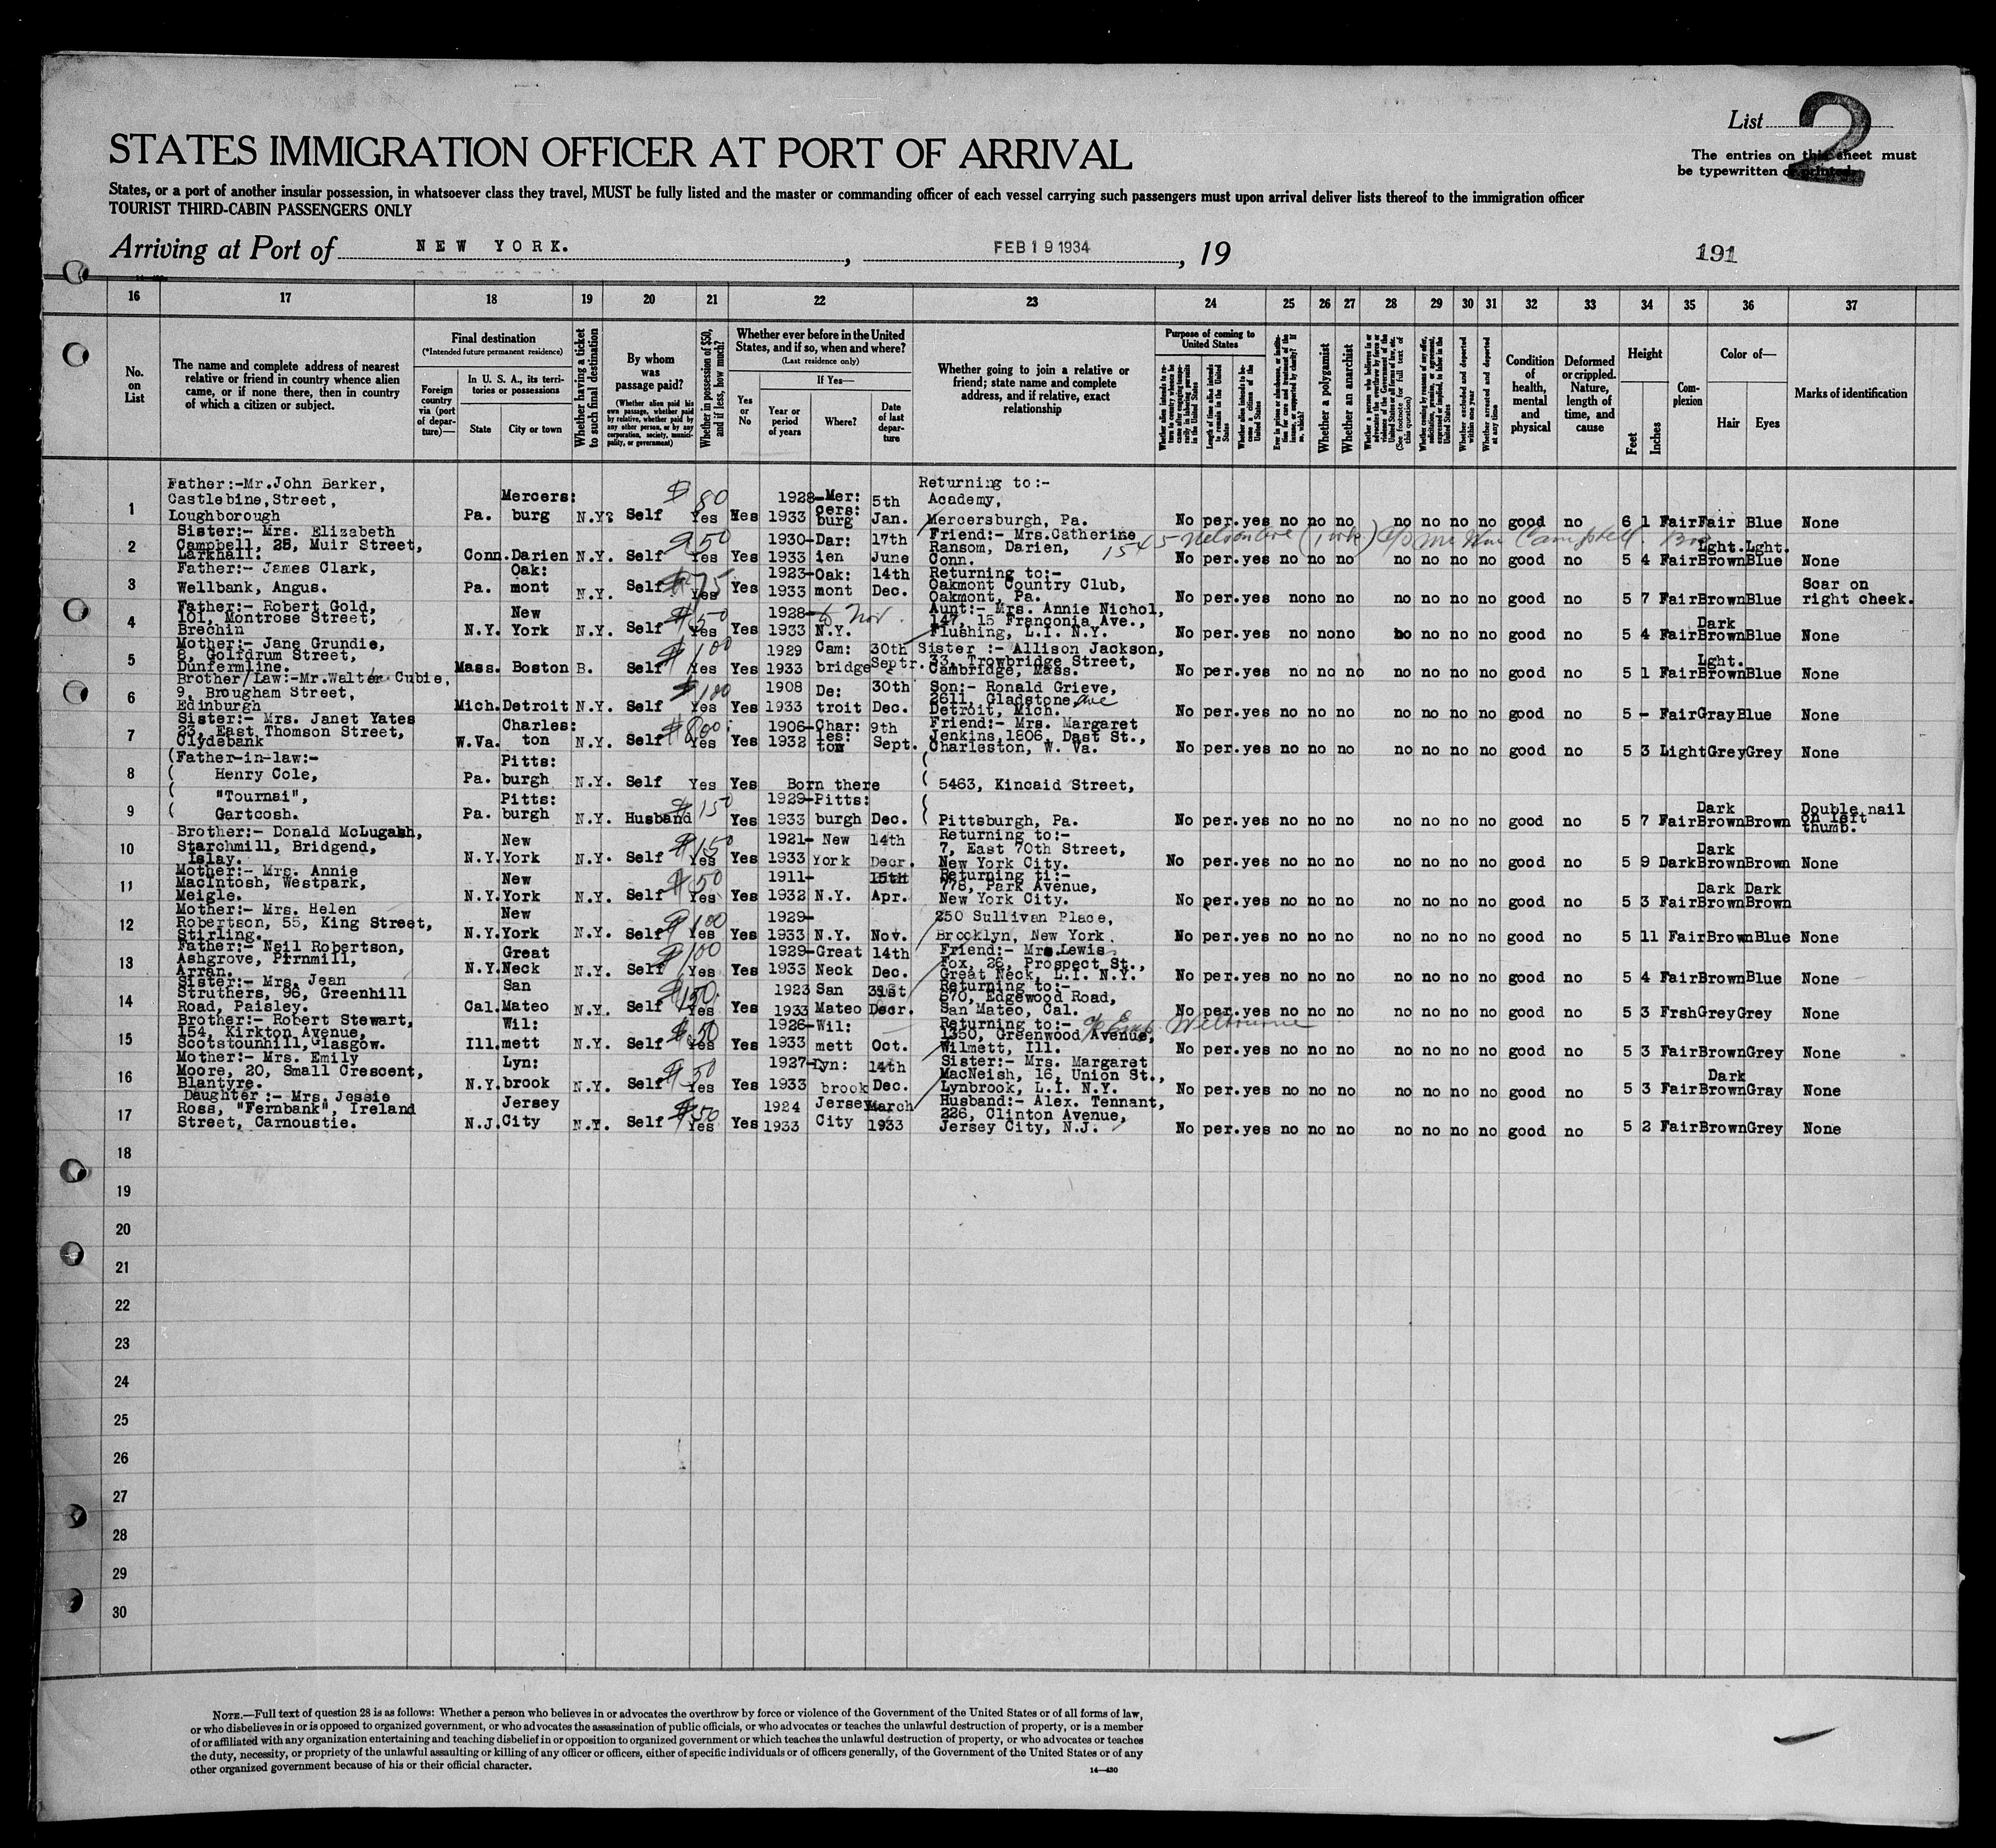 List 2
STATES IMMIGRATION OFFICER AT PORT OF ARRIVAL
The entries on this sheet must
be typewritten or printed.
States, or a port of another insular possession, in whatsoever class they travel, MUST be fully listed and the master or commanding officer of each vessel carrying such passengers must upon arrival deliver lists thereof to the immigration officer
TOURIST THIRD-CABIN PASSENGERS ONLY
Arriving at Port of NEW YORK. , FEB 19 1934 , 19 191
16 17 18 19 20 21 22 23 24 25 26 27 28 29 30 31 32 33 34 35 36 37
No. on List
The name and complete address of nearest relative or friend in country whence alien came, or if none there, then in country of which a citizen or subject.
Final destination
(*Intended future permanent residence)
Foreign country via (port of departure)—
In U. S. A., its territories or possessions
State City or town
Whether having a ticket to such final destination
By whom was passage paid?
(Whether alien paid his own passage, whether paid by relative, whether paid by any other person, or by any corporation, society, municipality, or government)
Whether in possession of $50, and if less, how much?
Whether ever before in the United States, and if so, when and where?
(Last residence only)
Yes or No
If Yes—
Year or period of years Where? Date of last departure
Whether going to join a relative or friend; state name and complete address, and if relative, exact relationship
Purpose of coming to United States
Whether alien intends to return to country whence he came after engaging temporarily in laboring pursuits in the United States
Length of time alien intends to remain in the United States
Whether alien intends to become a citizen of the United States
Ever in prison or almshouse, or institution for care and treatment of the insane, or supported by charity? If so, which?
Whether a polygamist
Whether an anarchist
Whether coming by reason of any offer, solicitation, promise, or agreement, expressed or implied, to labor in the United States
Whether excluded and deported within one year
Whether arrested and deported at any time
Condition of health, mental and physical
Deformed or crippled. Nature, length of time, and cause
Height
Feet Inches
Complexion
Color of—
Hair Eyes
Marks of identification
1 Father:-Mr.John Barker, Castlebine,Street, Loughborough Pa. Mercers: burg N.Y. Self $80 Yes Yes 1928-1933 Mer: cers: burg 5th Jan. Returning to:- Academy, Mercersburgh, Pa. No per. yes no no no no no no no good no 6 1 Fair Fair Blue None
2 Sister:- Mrs. Elizabeth Campbell, 25, Muir Street, Larkhall. Conn. Darien N.Y. Self $50 Yes Yes 1930-1933 Dar: ien 17th June Friend:- Mrs.Catherine Ransom, Darien, Conn. 1545 Nelson Ave c/o Mr Wm Campbell. Bro No per. yes no no no no no no no good no 5 4 Fair Lght. Brown Lght. Blue None
3 Father:- James Clark, Wellbank, Angus. Pa. Oak: mont N.Y. Self $75 Yes Yes 1923-1933 Oak: mont 14th Dec. Returning to:- Oakmont Country Club, Oakmont, Pa. No per. yes no no no no no no no good no 5 7 Fair Brown Blue Scar on right cheek.
4 Father:- Robert Gold, 101, Montrose Street, Brechin N.Y. New York N.Y. Self $50 Yes Yes 1928-1933 N.Y. Nov. Aunt:- Mrs. Annie Nichol, 147, 15 Franconia Ave., Flushing, L.I. N.Y. No per. yes no no no no no no no good no 5 4 Fair Dark Brown Blue None
5 Mother:- Jane Grundie, 8, Golfdrum Street, Dunfermline. Mass. Boston B. Self $100 Yes Yes 1929 1933 Cam: bridge 30th Septr. Sister :- Allison Jackson, 33, Trowbridge Street, Cambridge, Mass. No per. yes no no no no no no no good no 5 1 Fair Lght. Brown Blue None
6 Brother/Law:-Mr.Walter Cubie, 9, Brougham Street, Edinburgh Mich. Detroit N.Y. Self $180 Yes Yes 1908 1933 De: troit 30th Dec. Son:- Ronald Grieve, 2611, Gladstone, Ave Detroit, Mich. No per. yes no no no no no no no good no 5 - Fair Gray Blue None
7 Sister:- Mrs. Janet Yates 23, East Thomson Street, Clydebank W.Va. Charles: ton N.Y. Self $800 Yes Yes 1906-1932 Char: les: ton 9th Sept. Friend:- Mrs. Margaret Jenkins,1806, Dast St., Charleston, W. Va. No per. yes no no no no no no no good no 5 3 Light Grey Grey None
8 (Father-in-law:- Henry Cole, Pa. Pitts: burgh N.Y. Self Yes Yes Born there 5463, Kincaid Street,
9 "Tournai", Gartcosh. Pa. Pitts: burgh N.Y. Husband $150 Yes 1929-1933 Pitts: burgh Dec. Pittsburgh, Pa. No per. yes no no no no no no no good no 5 7 Fair Dark Brown Brown Double nail on left thumb.
10 Brother:- Donald McLugash, Starchmill, Bridgend, Islay. N.Y. New York N.Y. Self $150 Yes Yes 1921-1933 New York 14th Decr. Returning to:- 7, East 70th Street, New York City. No per. yes no no no no no no no good no 5 9 Dark Dark Brown Brown None
11 Mother:- Mrs. Annie MacIntosh, Westpark, Meigle. N.Y. New York N.Y. Self $50 Yes Yes 1911-1932 N.Y. 15th Apr. Returning ti:- 778, Park Avenue, New York City. No per. yes no no no no no no no good no 5 3 Fair Dark Brown Dark Brown
12 Mother:- Mrs. Helen Robertson, 55, King Street, Stirling. N.Y. New York N.Y. Self $100 Yes Yes 1929-1933 N.Y. Nov. 250 Sullivan Place, Brooklyn, New York. No per. yes no no no no no no no good no 5 11 Fair Brown Blue None
13 Father:- Neil Robertson, Ashgrove, Pirnmill, Arran. N.Y. Great Neck N.Y. Self $100 Yes Yes 1929-1933 Great Neck 14th Dec. Friend:- Mrs.Lewis Fox, 26, Prospect St., Great Neck, L.I. N.Y. No per. yes no no no no no no no good no 5 4 Fair Brown Blue None
14 Sister:- Mrs. Jean Struthers, 96, Greenhill Road, Paisley. Cal. San Mateo N.Y. Self $150 Yes Yes 1923 1933 San Mateo 31st Decr. Returning to:- 870, Edgewood Road, San Mateo, Cal. No per. yes no no no no no no no good no 5 3 Frsh Grey Grey None
15 Brother:- Robert Stewart, 154, Kirkton Avenue, Scotstounhill, Glasgow. Ill. Wil: mett N.Y. Self $50 Yes Yes 1926-1933 Wil: mett Oct. Returning to:- 1350, Greenwood Avenue, Wilmett, Ill. No per. yes no no no no no no no good no 5 3 Fair Brown Grey None
16 Mother:- Mrs. Emily Moore, 20, Small Crescent, Blantyre. N.Y. Lyn: brook N.Y. Self $50 Yes Yes 1927-1933 Lyn: brook 14th Dec. Sister:- Mrs. Margaret MacNeish, 16, Union St., Lynbrook, L.I. N.Y. No per. yes no no no no no no no good no 5 3 Fair Dark Brown Gray None
17 Daughter :- Mrs. Jessie Ross, "Fernbank", Ireland Street, Carnoustie. N.J. Jersey City N.Y. Self $50 Yes Yes 1924 1933 Jersey City March 1933 Husband:- Alex. Tennant, 226, Clinton Avenue, Jersey City, N.J. No per. yes no no no no no no no good no 5 2 Fair Brown Grey None
18
19
20
21
22
23
24
25
26
27
28
29
30
NOTE.—Full text of question 28 is as follows: Whether a person who believes in or advocates the overthrow by force or violence of the Government of the United States or of all forms of law,
or who disbelieves in or is opposed to organized government, or who advocates the assassination of public officials, or who advocates or teaches the unlawful destruction of property, or is a member
of or affiliated with any organization entertaining and teaching disbelief in or opposition to organized government or which teaches the unlawful destruction of property, or who advocates or teaches
the duty, necessity, or propriety of the unlawful assaulting or killing of any officer or officers, either of specific individuals or of officers generally, of the Government of the United States or of any
other organized government because of his or their official character.
14—430